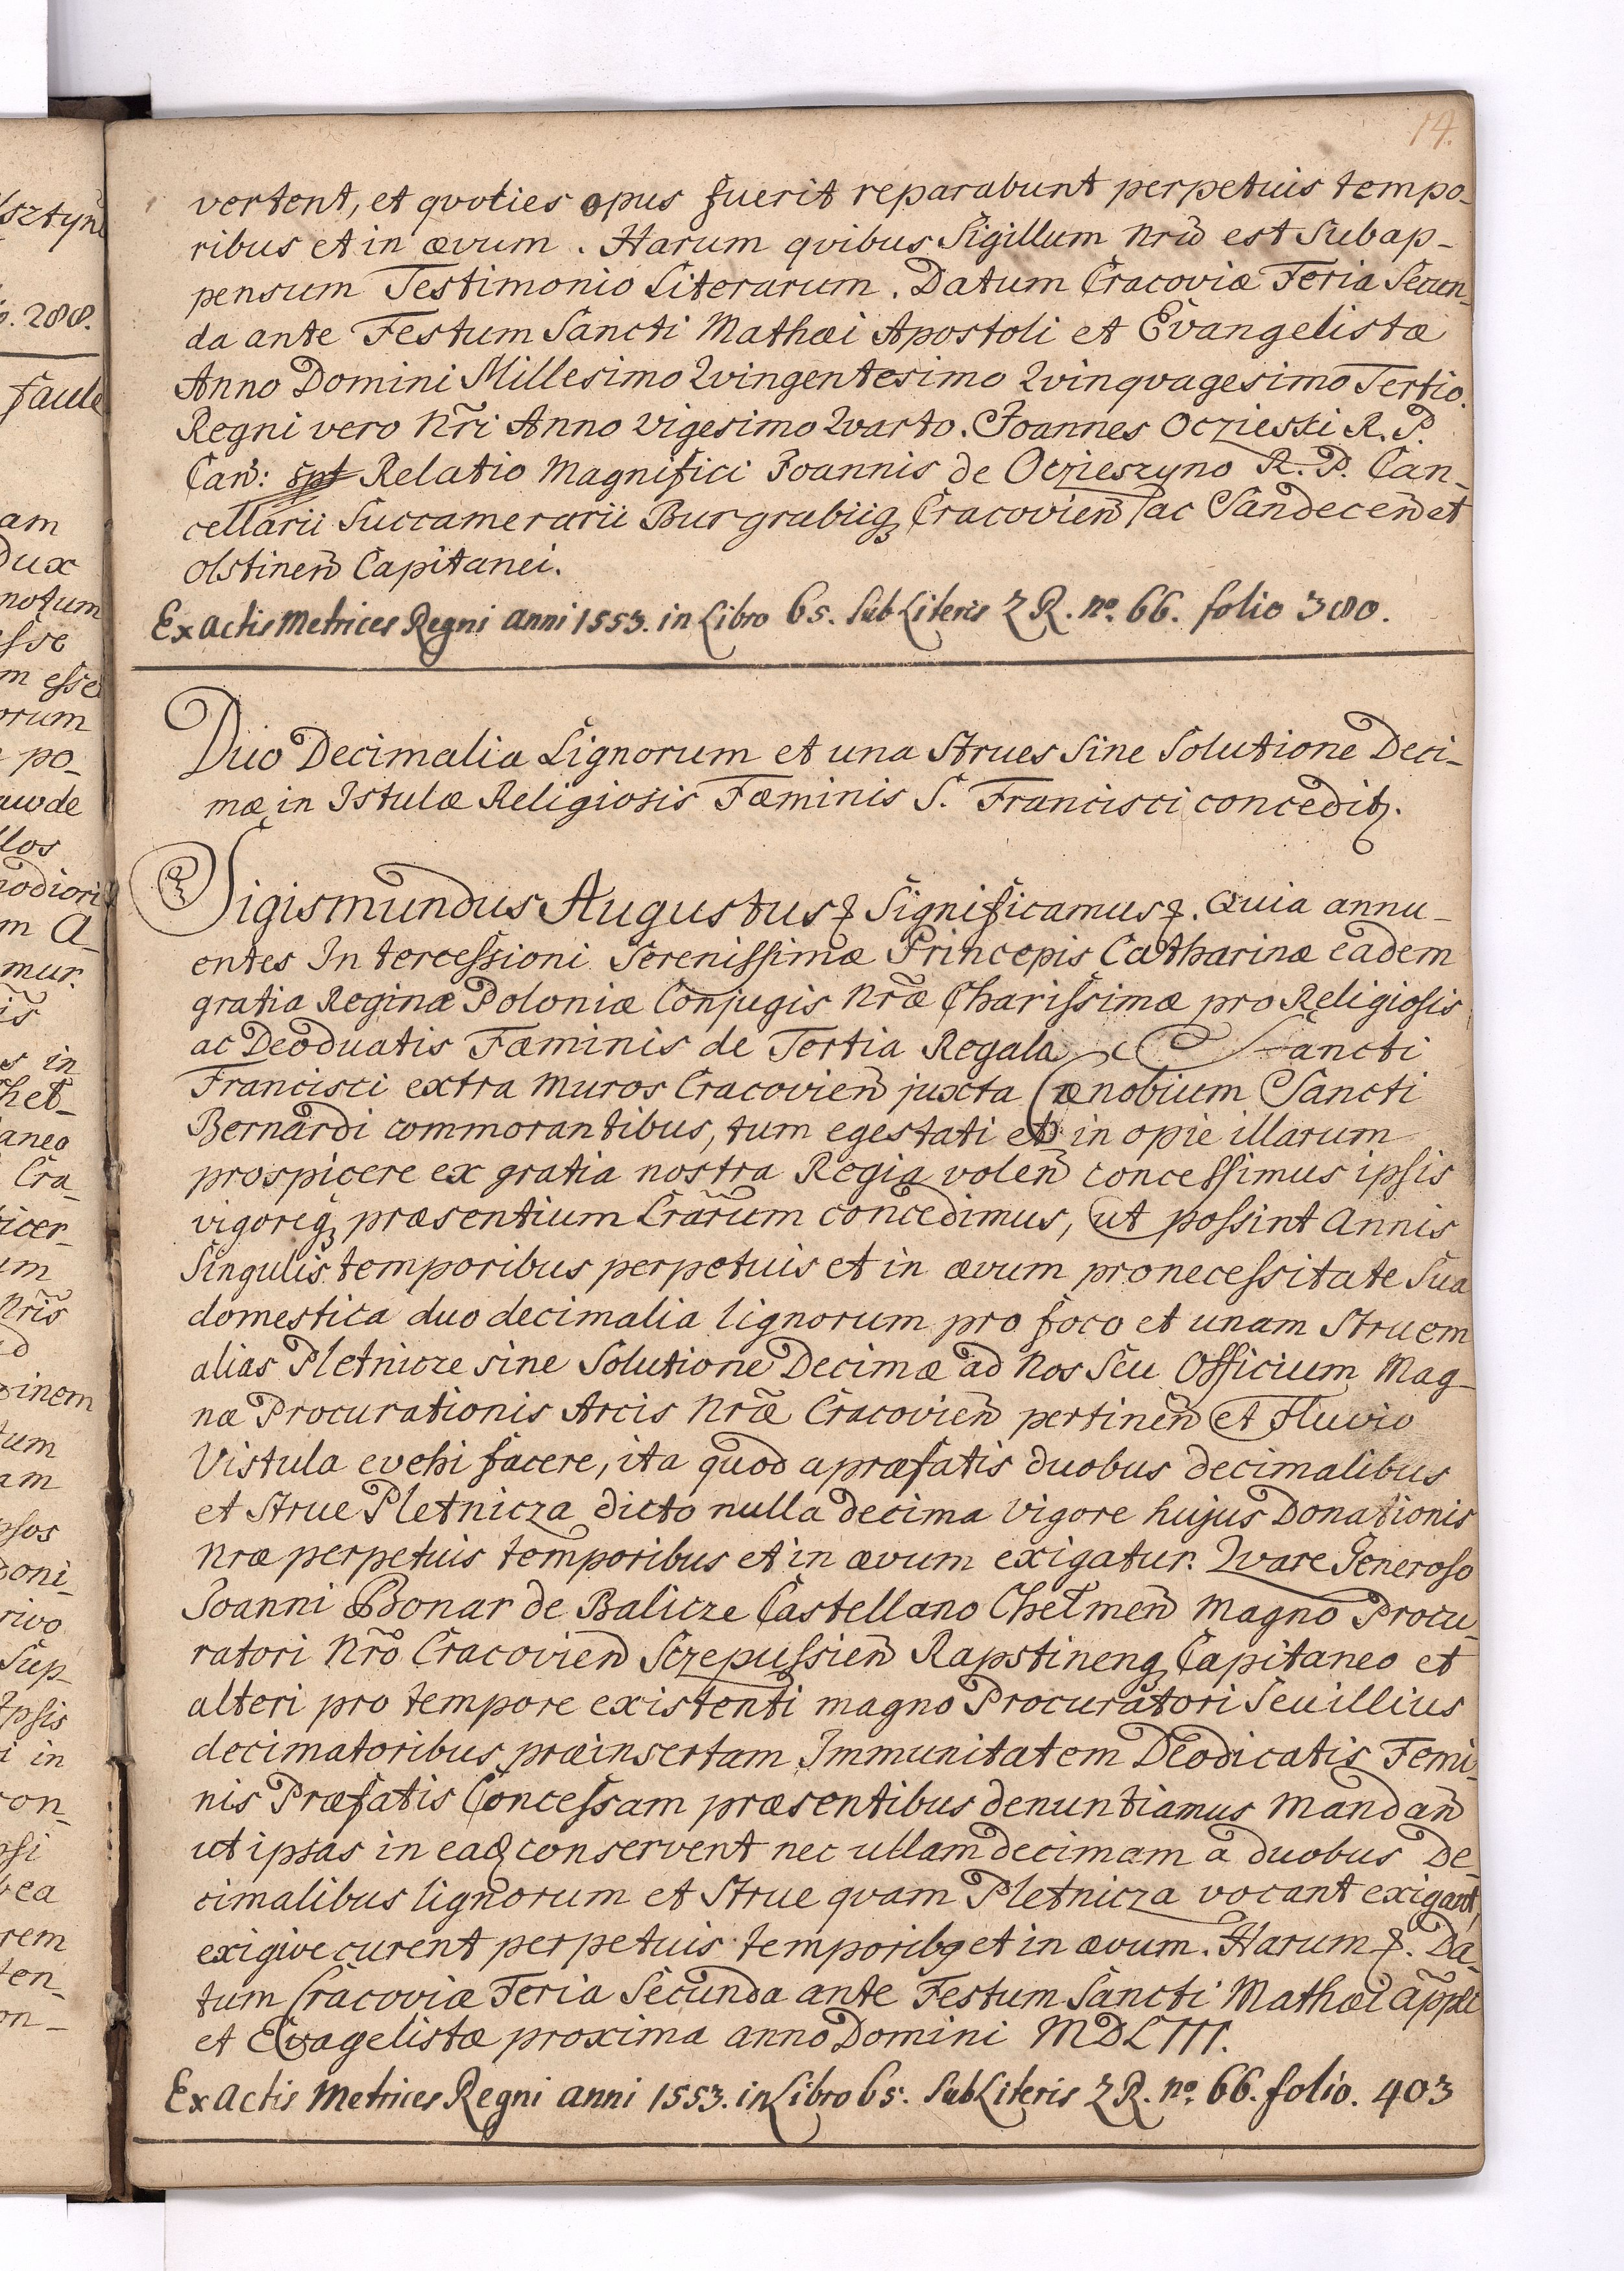 14.
vertent, et qvoties opus fuerit reparabunt perpetuis tempo-
ribus et in ævum. Harum qvibus Sigillum nrũ est Subap-
pensum Testimonio Literarum. Datum Cracoviæ Feria Secun-
da ante Festum Sancti Mathæi Apostoli et Evangelistæ
Anno Domini Millesimo Qvingentesimo Qvinqvagesimo Tertio.
Regni vero nr̃i Anno vigesimo Qvarto. Joannes Oczieski R. P.
Can̄: Relatio Magnifici Joannis de Oczieszyno R. P. Can-
cellarii Succamerarii Burgrabiiq Cracovien̄ ac Sandecen̄ et
olstinen̄ Capitanei.
Ex Actis Metrices Regni anni 1553. in Libro 65. Sub Literis Z R. no. 66. folio 380.
Duo Decimalia Lignorum et una Strues Sine Solutione Deci-
mæ in Istulæ Religiosis Fæminis S. Francisci conceditʒ.
Sigismundus Augustus Significamus. Quia annu-
entes Intercessioni Serenissimæ Principis Catharinæ eadem
gratia Reginæ Poloniæ Conjugis nr̃æ Charissimæ pro Religiosis
ac Deoduatis Fæminis de Tertia Regala Sancti
Francisci extra muros Cracovien̄ juxta Cænobium Sancti
Bernardi commorantibus, tum egestati et in opie illarum
prospicere ex gratia nostra Regia volen̄ concessimus ipsis
vigoreqʒ præsentium Lrãrum concedimus, ut possint Annis
Singulis temporibus perpetuis et in ævum pro necessitate Sua
domestica duo decimalia lignorum pro foco et unam Struem
alias Pletnicze sine Solutione Decimæ ad Nos Seu Officium Mag-
næ Procurationis Arcis nr̃æ Cracovien̄ pertinen̄ et Fluvio
Vistula evehi facere, ita quod a præfatis duobus decimalibus
et Strue Pletnicza dicto nulla decima vigore hujus Donationis
nræ perpetuis temporibus et in ævum exigatur. Qvare Generoso
Joanni Bonar de Balicze Castellano Chełmen̄ Magno Procu-
ratori Nr̃o Cracovien̄ Sczepussien̄ Rapstinenqʒ Capitaneo et
alteri pro tempore existenti magno Procuratori Seu illius
decimatoribus præinsertam Immunitatem Deodicatis Femi-
nis Præfatis Concessam præsentibus denuntiamus Mandan̄
ut ipsas in ea conservent nec ullam decimam a duobus De-
cimalibus lignorum et Strue qvam Pletnicza vocant exigant,
exigive curent perpetuis temporibʒ et in ævum. Harum. Da-
tum Cracoviæ Feria Secunda ante Festum Sancti Mathæi App̃li
et Evagelistæ proxima anno Domini MDLIII.
Ex Actis Metrices Regni anni 1553. in Libro 65. Sub Literis Z R. no. 66. folio. 403